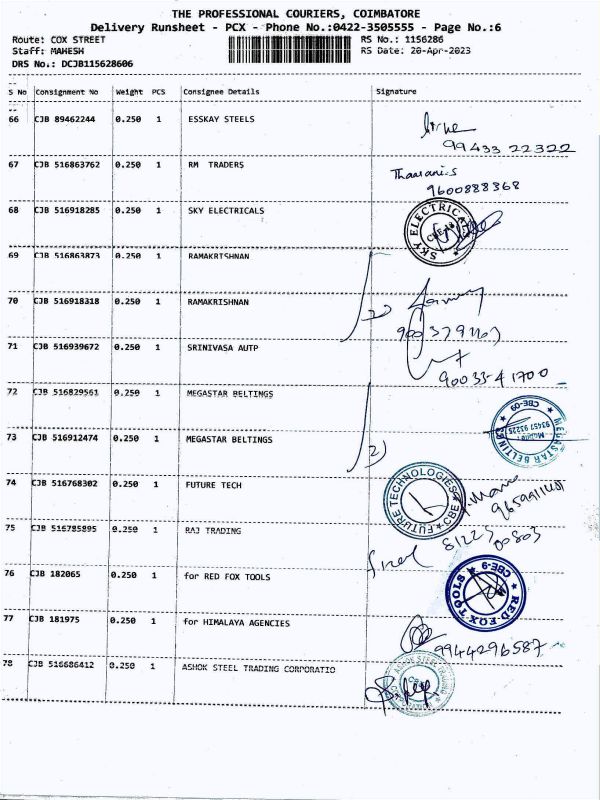 THE PROFESSIONAL COURIERS, COIMBATORE
Delivery Runsheet - PCX - Phone No.:0422-3505555 - Page No.:6
Route: COX STREET RS No.: 1156286
Staff: MAHESH RS Date: 20-Apr-2023
DRS No.: DCJB115628606
S No Consignment No Weight PCS Consignee Details Signature
66 CJB 89462244 0.250 1 ESSKAY STEELS
99433 22322
67 CJB 516863762 0.250 1 RM TRADERS
9600888368
68 CJB 516918285 0.250 1 SKY ELECTRICALS
SKY ELECTRICA
69 CJB 516863873 0.250 1 RAMAKRISHNAN
70 CJB 516918318 0.250 1 RAMAKRISHNAN
71 CJB 516939672 0.250 1 SRINIVASA AUTP
90033-41700
72 CJB 516829561 0.250 1 MEGASTAR BELTINGS
MEGASTAR BELTIN CBE-09
73 CJB 516912474 0.250 1 MEGASTAR BELTINGS
74 CJB 516768302 0.250 1 FUTURE TECH
FUTURE TECHNOLOGIES CBE
75 CJB 516785895 0.250 1 RAJ TRADING
76 CJB 182065 0.250 1 for RED FOX TOOLS
RED FOX TOOLS CBE-9
77 CJB 181975 0.250 1 for HIMALAYA AGENCIES
9944296587
78 CJB 516686412 0.250 1 ASHOK STEEL TRADING CORPORATIO